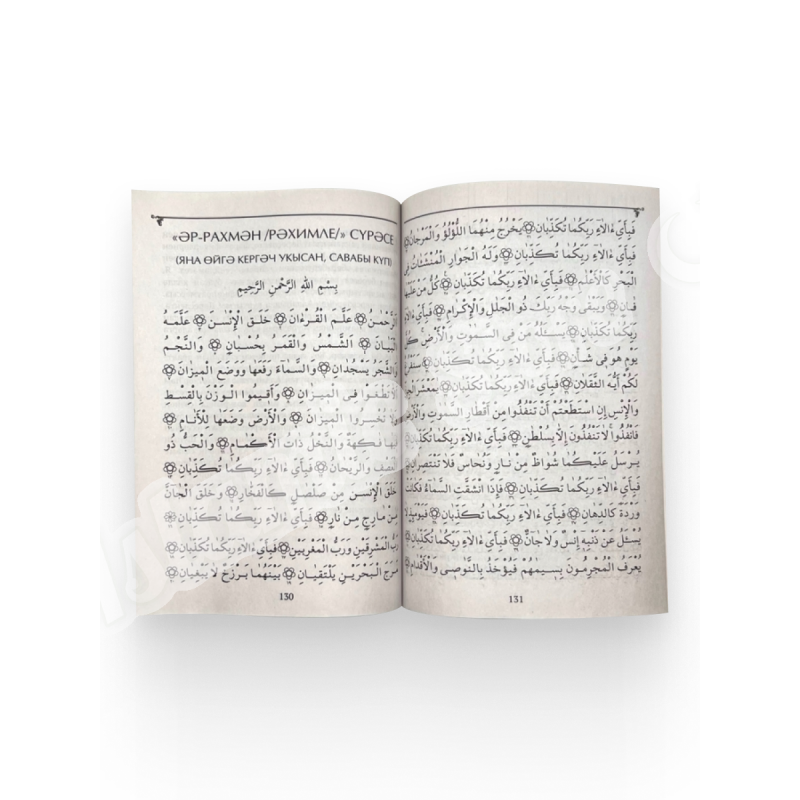 «ӘР-РАХМӘН /РӘХИМЛЕ/» СҮРӘСЕ
(ЯҢА ӨЙГӘ КЕРГӘЧ УКЫСАҢ, САВАБЫ КҮП)
بِسْمِ اللّٰهِ الرَّحْمٰنِ الرَّحِيمِ
الرَّحْمٰنُ ۝ عَلَّمَ الْقُرْءَانَ ۝ خَلَقَ الْإِنْسٰنَ ۝ عَلَّمَهُ
الْبَيَانَ ۝ الشَّمْسُ وَالْقَمَرُ بِحُسْبَانٍ ۝ وَالنَّجْمُ
وَالشَّجَرُ يَسْجُدَانِ ۝ وَالسَّمَآءَ رَفَعَهَا وَوَضَعَ الْمِيزَانَ ۝
أَلَّا تَطْغَوْا فِى الْمِيزَانِ ۝ وَأَقِيمُوا الْوَزْنَ بِالْقِسْطِ
وَلَا تُخْسِرُوا الْمِيزَانَ ۝ وَالْأَرْضَ وَضَعَهَا لِلْأَنَامِ ۝
فِيهَا فٰكِهَةٌ وَالنَّخْلُ ذَاتُ الْأَكْمَامِ ۝ وَالْحَبُّ ذُو
الْعَصْفِ وَالرَّيْحَانُ ۝ فَبِأَيِّ ءَالَآءِ رَبِّكُمَا تُكَذِّبَانِ ۝
خَلَقَ الْإِنْسٰنَ مِنْ صَلْصٰلٍ كَالْفَخَّارِ ۝ وَخَلَقَ الْجَآنَّ
مِنْ مَارِجٍ مِنْ نَارٍ ۝ فَبِأَيِّ ءَالَآءِ رَبِّكُمَا تُكَذِّبَانِ ۝
رَبُّ الْمَشْرِقَيْنِ وَرَبُّ الْمَغْرِبَيْنِ ۝ فَبِأَيِّ ءَالَآءِ رَبِّكُمَا تُكَذِّبَانِ ۝
مَرَجَ الْبَحْرَيْنِ يَلْتَقِيَانِ ۝ بَيْنَهُمَا بَرْزَخٌ لَا يَبْغِيَانِ ۝
130
فَبِأَيِّ ءَالَآءِ رَبِّكُمَا تُكَذِّبَانِ ۝ يَخْرُجُ مِنْهُمَا اللُّؤْلُؤُ وَالْمَرْجَانُ ۝
فَبِأَيِّ ءَالَآءِ رَبِّكُمَا تُكَذِّبَانِ ۝ وَلَهُ الْجَوَارِ الْمُنْشَئَاتُ فِى
الْبَحْرِ كَالْأَعْلٰمِ ۝ فَبِأَيِّ ءَالَآءِ رَبِّكُمَا تُكَذِّبَانِ ۝ كُلُّ مَنْ عَلَيْهَا
فَانٍ ۝ وَيَبْقٰى وَجْهُ رَبِّكَ ذُو الْجَلٰلِ وَالْإِكْرَامِ ۝ فَبِأَيِّ ءَالَآءِ
رَبِّكُمَا تُكَذِّبَانِ ۝ يَسْئَلُهُ مَنْ فِى السَّمٰوٰتِ وَالْأَرْضِ كُلَّ
يَوْمٍ هُوَ فِى شَأْنٍ ۝ فَبِأَيِّ ءَالَآءِ رَبِّكُمَا تُكَذِّبَانِ ۝ سَنَفْرُغُ
لَكُمْ أَيُّهَ الثَّقَلَانِ ۝ فَبِأَيِّ ءَالَآءِ رَبِّكُمَا تُكَذِّبَانِ ۝ يٰمَعْشَرَ الْجِنِّ
وَالْإِنْسِ إِنِ اسْتَطَعْتُمْ أَنْ تَنْفُذُوا مِنْ أَقْطَارِ السَّمٰوٰتِ وَالْأَرْضِ
فَانْفُذُوا لَا تَنْفُذُونَ إِلَّا بِسُلْطٰنٍ ۝ فَبِأَيِّ ءَالَآءِ رَبِّكُمَا تُكَذِّبَانِ ۝
يُرْسَلُ عَلَيْكُمَا شُوَاظٌ مِنْ نَارٍ وَنُحَاسٌ فَلَا تَنْتَصِرَانِ ۝
فَبِأَيِّ ءَالَآءِ رَبِّكُمَا تُكَذِّبَانِ ۝ فَإِذَا انْشَقَّتِ السَّمَآءُ فَكَانَتْ
وَرْدَةً كَالدِّهَانِ ۝ فَبِأَيِّ ءَالَآءِ رَبِّكُمَا تُكَذِّبَانِ ۝ فَيَوْمَئِذٍ لَا
يُسْئَلُ عَنْ ذَنْبِهٖ إِنْسٌ وَلَا جَآنٌّ ۝ فَبِأَيِّ ءَالَآءِ رَبِّكُمَا تُكَذِّبَانِ ۝
يُعْرَفُ الْمُجْرِمُونَ بِسِيمٰهُمْ فَيُؤْخَذُ بِالنَّوٰصِى وَالْأَقْدَامِ ۝
131